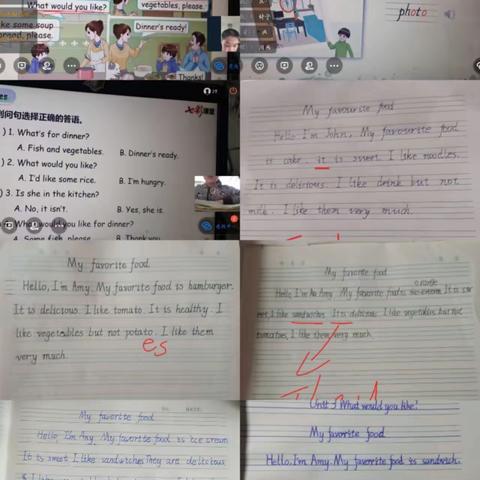 What would you like?
vegetables, please.
ke some soup
bread, please.
Dinner's ready!
Thanks!
photo
列问句选择正确的答语。
) 1. What's for dinner?
A. Fish and vegetables.
B. Dinner's ready.
) 2. What would you like?
A. I'd like some rice.
B. I'm hungry.
) 3. Is she in the kitchen?
A. No, it isn't.
B. Yes, she is.
What would you like for dinner?
A. Some fish, please.
B. Thank you.
My favourite food
Hello, I'm John, My favourite food
is cake. it is sweet. I like noodles.
It is delicious. I like drink but not
milk. I like them very much.
My favorite food.
Hello, I'm Amy. My favorite food is hamburger.
It is delicious. I like tomato. It is healthy. I
like vegetables but not potato. I like them
es
very much.
My favorite food
Hello, I'm Amy. My favorite food is
It is
I like sandwiches. It is delicious. I like vegetables but not
tomatoes, I like them very much.
My favorite food
Hello, I'm Amy. My favorite food is ice cream
It is sweet. I like sandwiches. They are delicious
Unit 3 What would you like?
My favorite food
Hello, I'm Amy. My favorite food is sandwich.